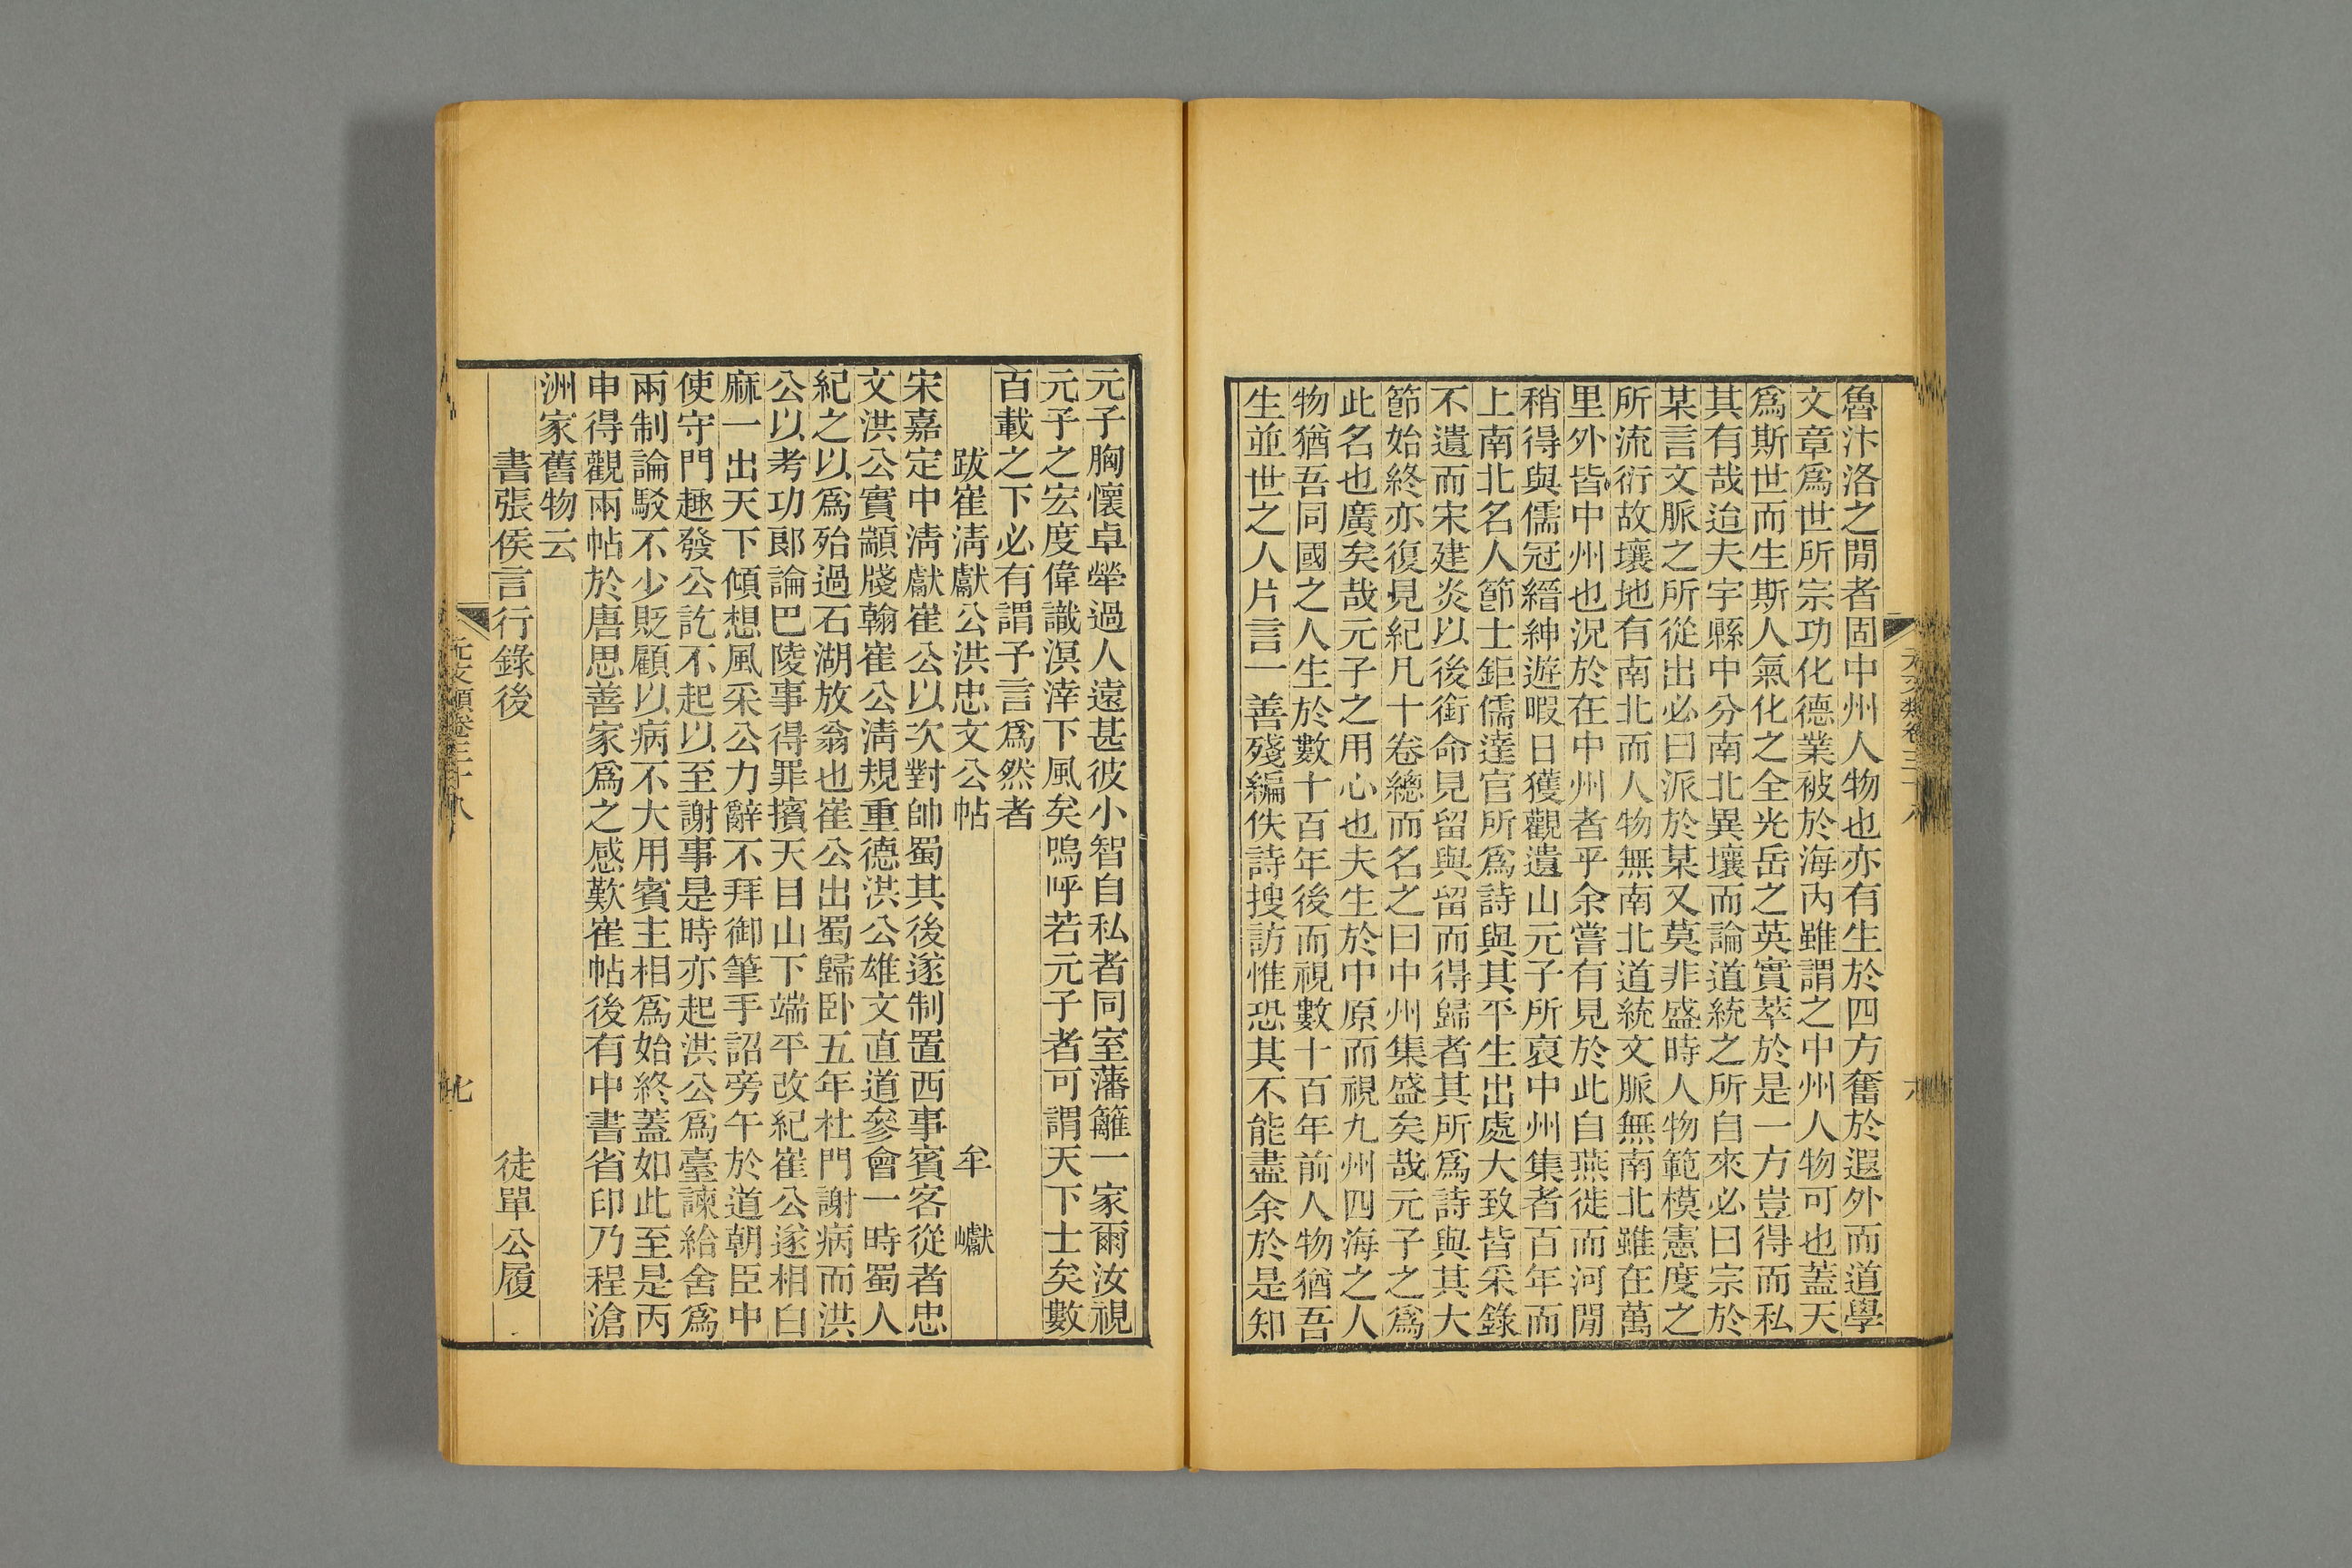 魯汴洛之閒者固中州人物也亦有生於四方奮於遐外而道學
文章爲世所宗功化德業被於海內雖謂之中州人物可也蓋天
爲斯世而生斯人氣化之全光岳之英實萃於是一方豈得而私
其有哉迨夫宇縣中分南北異壤而論道統之所自來必曰宗於
某言文脈之所從出必曰派於某又莫非盛時人物範模憲度之
所流衍故壤地有南北而人物無南北道統文脈無南北雖在萬
里外皆中州也況於在中州者乎余嘗有見於此自燕徙而河閒
稍得與儒冠縉紳遊暇日獲觀遺山元子所裒中州集者百年而
上南北名人節士鉅儒達官所爲詩與其平生出處大致皆采錄
不遺而宋建炎以後銜命見留與留而得歸者其所爲詩與其大
節始終亦復見紀凡十卷總而名之曰中州集盛矣哉元子之爲
此名也廣矣哉元子之用心也夫生於中原而視九州四海之人
物猶吾同國之人生於數十百年後而視數十百年前人物猶吾
生並世之人片言一善殘編佚詩搜訪惟恐其不能盡余於是知
元文類卷三十八
元子胸懷卓犖過人遠甚彼小智自私者同室藩籬一家爾汝視
元子之宏度偉識溟涬下風矣嗚呼若元子者可謂天下士矣數
百載之下必有謂予言爲然者
跋崔淸獻公洪忠文公帖 牟 巘
宋嘉定中淸獻崔公以次對帥蜀其後遂制置西事賓客從者忠
文洪公實顓牋翰崔公淸規重德洪公雄文直道參會一時蜀人
紀之以爲殆過石湖放翁也崔公出蜀歸卧五年杜門謝病而洪
公以考功郞論巴陵事得罪擯天目山下端平改紀崔公遂相白
麻一出天下傾想風采公力辭不拜御筆手詔旁午於道朝臣中
使守門趣發公訖不起以至謝事是時亦起洪公爲臺諫給舍爲
兩制論駁不少貶顧以病不大用賓主相爲始終蓋如此至是丙
申得觀兩帖於唐思善家爲之感歎崔帖後有中書省印乃程滄
洲家舊物云
書張侯言行錄後 徒單公履
元文類卷三十八